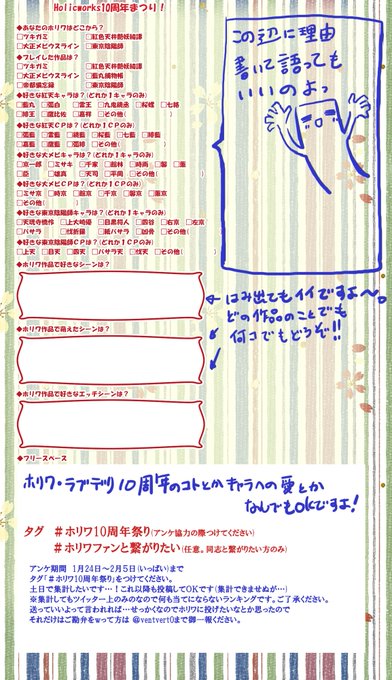 Holicworks10周年まつり！
◆あなたのホリワはどこから？
□ツキガミ □紅色天井艶妖綺譚
□大正メビウスライン □東京陰陽師
◆プレイした作品は？
□ツキガミ □紅色天井艶妖綺譚
□大正メビウスライン □藍丸捕物帳
□帝都備忘録 □東京陰陽師
◆好きな紅天キャラは？(どれか1キャラのみ)
□藍丸 □弧白 □雷王 □九竜 □桜螺 □七柊
□椿王 □鷹比佐 □嘉祥 □その他( )
◆好きな紅天CPは？(どれか1CPのみ)
□弧藍 □雷藍 □桜藍 □七藍
□嘉藍 □鷹藍 □その他( )
◆好きな大メビキャラは？(どれか1キャラのみ)
□京一郎 □ミサキ □千家 □館林 □時雨 □馨 □薫
□臣 □雄真 □天司 □その他( )
◆好きな大メビCPは？(どれか1CPのみ)
□ミサ京 □時京 □館京 □千京 □馨京 □薫京
□その他( )
◆好きな東京陰陽師キャラは？(どれか1キャラのみ)
□右京 □左京
□バサラ □その他( )
◆好きな東京陰陽師CPは？(どれか1CPのみ)
□上天 □目天 □四天 □バサラ天 □その他( )
◆ホリワ作品で好きなシーンは？
◆ホリワ作品で萌えたシーンは？
◆ホリワ作品で好きなエッチシーンは？
◆フリースペース
この辺に理由
書いて語っても
いいのよっ
←はみ出てもイイですよ〜。
どの作品のことでも
何コでもどうぞ!!
ホリワ・ラブデリ10周年のコトとかキャラへの愛とか
なんでもokですよ!
タグ #ホリワ10周年祭り(アンケ協力の際つけてください)
#ホリワファンと繋がりたい(任意。同志と繋がりたい方のみ)
アンケ期間 1月24日〜2月5日(いっぱい)まで
タグ「#ホリワ10周年祭り」をつけてください。
土日で集計したいです…！これ以降も投稿してOKです(集計できませぬが…)
※集計してもツイッター上のみのなので何も当てにならないランキングです。ご了承ください。
送っていいよって言われれば…せっかくなのでホリワに投げたいなとか思ったので
それだけはご勘弁をwって方は @ventvert0まで御一報ください。